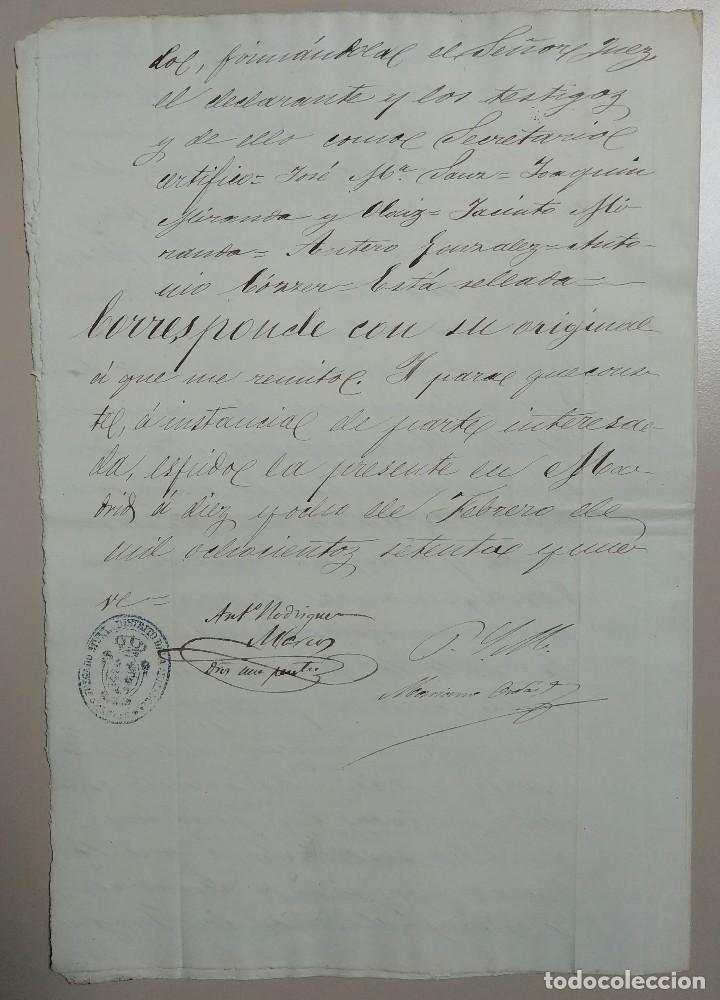 dol, firmándolal el Señor Juez,
el declarante y los testigoz
y de ello comol Secretariol
certifico= José Mª Sanz= Joaquin
Miranda y Olaiz= Jacinto Mi-
randa= Antero Gonzalez= Anto-
nio Cózzer= Está sellada=
Corresponde con su original
á que me remitol. Y paral que cons-
tel, á instancial de parte interesa-
da, espidol la presente en Ma-
drid á diez y ocho del Febrero de
mil ochocientoz setental y nue-
ve=
Antº Rodriguez
JUZGADO MUNAL DISTRITO DE LA
P. S. M.
Mariano
todocoleccion.net